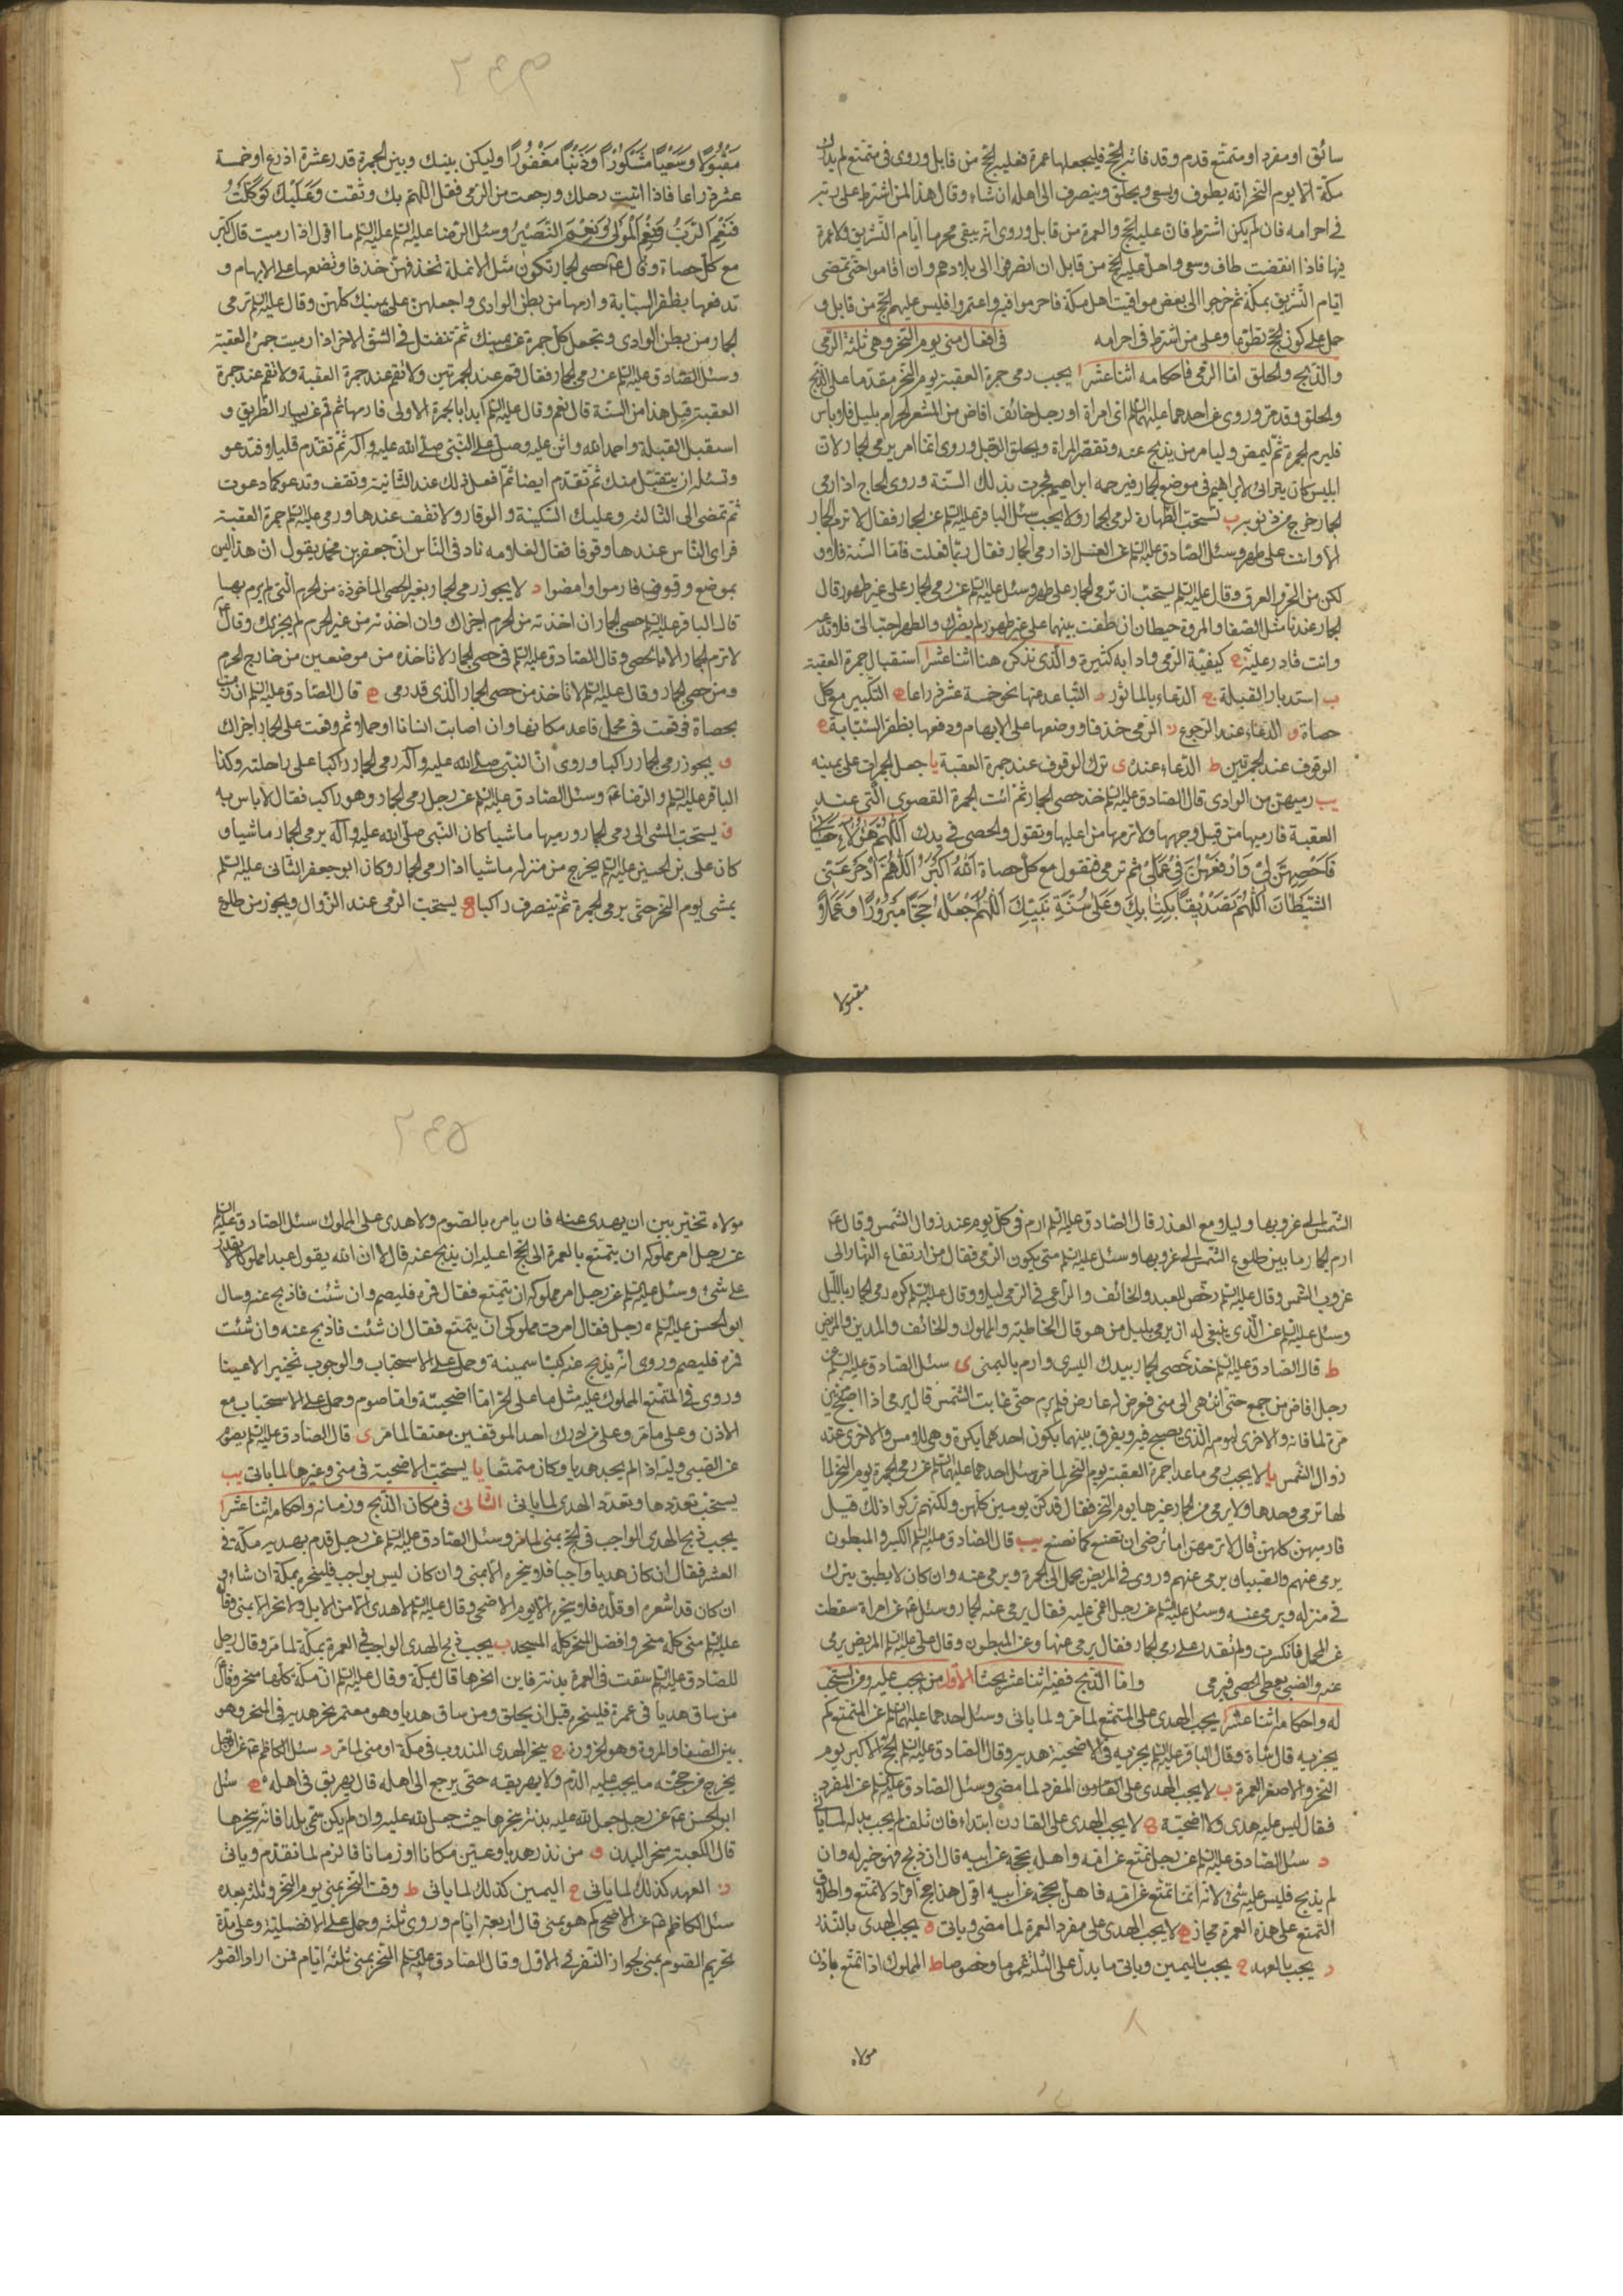 سائق او مفرد او متمتّع قدم وقد فاته الحجّ فليجعلها عمرة فعليه الحجّ من قابل وروى فى متمتع لم يدرك
مكّة الّا يوم النّحر انّه يطوف ويسعى ويحلق وينصرف الى اهله ان شاء وقال هذا لمن اشترط على ربّه
فى احرامه فان لم يكن اشترط فان عليه الحجّ والعمرة من قابل وروى انّه يبقى محرما ايّام التّشريق ولا عمرة
فيها فاذا انقضت طاف وسعى واحلّ وعليه الحجّ من قابل ان انصرفوا الى بلادهم وان اقاموا حتّى تمضى
ايّام التّشريق بمكّة ثم خرجوا الى بعض مواقيت اهل مكّة فاحرموا فيه واعتمروا فليس عليهم الحجّ من قابل و
حمل على كون الحجّ تطوّعا وعلى من اشترط فى احرامه فى افعال منى يوم النّحر وهى ثلثة الرّمى
والذّبح والحلق امّا الرّمى فاحكامه اثنا عشر ا يجب رمى جمرة العقبة يوم النّحر مقدّما على الذّبح
والحلق وقد مرّ وروى عن احدهما عليهما السّلم اىّ امراة او رجل خائف افاض من المشعر الحرام بليل فلا باس
فليرم الجمرة ثم ليمض وليامر من يذبح عنه وتقصّر المراة ويحلق الرّجل وروى انّما امر برمى الجمار لانّ
ابليس كان يتراىء لابراهيم فى موضع الجمار فيرجمه ابراهيم فجرت بذلك السّنّة وروى الحاج اذا رمى
الجمار خرج من ذنوبه ب تستحبّ الطّهارة لرمى الجمار ولا يجب سئل الباقر عليه السّلم عن الجمار فقال لا ترم الجمار
الّا وانت على طهر وسئل الصّادق عليه السّلم عن الغسل اذا رمى الجمار فقال ربّما فعلت فامّا السّنّة فلا و
لكن من الحرّ والعرق وقال عليه السّلم يستحبّ ان ترمى الجمار على طهر وسئل عليه السّلم عن رمى الجمار على غير طهور قال
الجمار عندنا مثل الصّفا والمروة حيطان ان طفت بينهما على غير طهور لم يضرّك والطهر احبّ الىّ فلا تدعه
وانت قادر عليه ج كيفيّة الرّمى وادابه كثيرة والّذى نذكر هنا اثنا عشر ا استقبال جمرة العقبة
ب استدبار القبلة ج الدّعاء بالماثور د التّباعد عنها نحو خمسة عشر ذراعا ه التّكبير مع كل
حصاة و الدّعاء عند الرّجوع ز الرّمى خذفا ووضعها على الابهام ودفعها بظفر السّبّابة ح
الوقوف عند الجمرتين ط الدّعاء عنده ى ترك الوقوف عند جمرة العقبة يا جعل الجمرات على يمينه
يب رميهنّ من الوادى قال الصّادق عليه السّلم خذ حصى الجمار ثم ائت الجمرة القصوى الّتى عند
العقبة فارمها من قبل وجهها ولا ترمها من اعلاها وتقول والحصى فى يدك اللّهمّ هؤلاء حصياتى
فاحصهنّ لى وارفعهنّ فى عملى ثم ترمى فتقول مع كل حصاة اللّه اكبر اللّهمّ ادحر عنّى
الشّيطان اللّهمّ تصديقا بكتابك وعلى سنّة نبيّك اللّهمّ اجعله حجّا مبرورا وعملا
مقبولا
٢٤٣
مقبولا وسعيا مشكورا وذنبا مغفورا وليكن بينك وبين الجمرة قدر عشرة اذرع او خمسة
عشر ذراعا فاذا اتيت رحلك ورجعت من الرّمى فقل اللّهمّ بك وثقت وعليك توكّلت
فنعم الرّبّ ونعم المولى ونعم النّصير وسئل الرّضا عليه السّلم ما اقول اذا رميت قال كبّر
مع كلّ حصاة وقال ع حصى الجمار تكون مثل الانملة تخذفهنّ خذفا وتضعها على الابهام و
تدفعها بظفر السّبّابة وارمها من بطن الوادى واجعلهنّ على يمينك كلّهنّ وقال عليه السّلم ترمى
الجمار من بطن الوادى وتجعل كلّ جمرة عن يمينك ثم تنفتل فى الشّق الاخر اذا رميت جمرة العقبة
وسئل الصّادق عليه السّلم عن رمى الجمار فقال قم عند الجمرتين ولا تقم عند جمرة العقبة ولا تقم عند جمرة
العقبة قيل هذا من السّنّة قال نعم وقال عليه السّلم ابدا بالجمرة الاولى فارمها ثم قم عن يسار الطّريق و
استقبل القبلة واحمد اللّه واثن عليه وصلّ على النّبى صلّى اللّه عليه وآله ثم تقدّم قليلا وتدعو
وتسئله ان يتقبّل منك ثم تقدّم ايضا ثم افعل ذلك عند الثّانية وتقف وتدعو كما دعوت
ثم تمضى الى الثّالثة وعليك السّكينة والوقار ولا تقف عندها ورمى عليه السّلم جمرة العقبة
فراى النّاس عندها وقوفا فقال لغلامه ناد فى النّاس انّ جعفر بن محمد يقول انّ هذا ليس
بموضع وقوف فارموا وامضوا د لا يجوز رمى الجمار بغير الحصى الماخوذة من الحرم الّتى لم يرم بها
قال الباقر عليه السّلم حصى الجمار ان اخذته من الحرم اجزاك وان اخذته من غير الحرم لم يجزيك وقال ع
لا ترم الجمار الّا بالحصى وقال الصّادق عليه السّلم فى حصى الجمار لا تاخذه من موضعين من خارج الحرم
ومن حصى الجمار وقال عليه السّلم لا تاخذ من حصى الجمار الّذى قد رمى ه قال الصّادق عليه السّلم ان رميت
بحصاة فوقعت فى محمل فاعد مكانها وان اصابت انسانا او جملا ثم وقعت على الجمار اجزاك
و يجوز رمى الجمار راكبا وروى انّ النّبى صلّى اللّه عليه وآله رمى الجمار راكبا على راحلته وكذا
الباقر عليه السّلم والرّضا ع وسئل الصّادق عليه السّلم عن رجل رمى الجمار وهو راكب فقال لا باس به
ز يستحبّ المشى الى رمى الجمار ورميها ماشيا كان النّبى صلّى اللّه عليه وآله يرمى الجمار ماشيا و
كان على بن الحسين عليه السّلم يخرج من منزله ماشيا اذا رمى الجمار وكان ابو جعفر الثّانى عليه السّلم
يمشى يوم النّحر حتّى يرمى الجمرة ثم ينصرف راكبا ح يستحبّ الرّمى عند الزّوال ويجوز من طلوع
الشّمس الى غروبها وليلا مع العذر قال الصّادق عليه السّلم ارم فى كلّ يوم عند زوال الشّمس وقال ع
ارم الجمار ما بين طلوع الشّمس الى غروبها وسئل عليه السّلم متى يكون الرّمى فقال من ارتفاع النّهار الى
غروب الشّمس وقال عليه السّلم رخّص للعبد والخائف والرّاعى فى الرّمى ليلا وقال عليه السّلم كره رمى الجمار بالّليل
وسئل عليه السّلم عن الّذى ينبغى له ان يرمى بليل من هو قال الحاطبة والمملوك والخائف والمدين والمريض
ط قال الصّادق عليه السّلم خذ حصى الجمار بيدك اليسرى وارم باليمنى ى سئل الصّادق عليه السّلم عن
رجل افاض من جمع حتّى انتهى الى منى فعرض له عارض فلم يرم حتّى غابت الشّمس قال يرمى اذا اصبح مرّتين
مرّة لما فاته والاخرى ليومه الّذى يصبح فيه ويفرق بينهما يكون احدهما بكرة وهى للامس والاخرى عند
زوال الشّمس يا لا يجب رمى ما عدا جمرة العقبة يوم النّحر لما مرّ وسئل احدهما عليهما السّلم عن رمى الجمرة يوم النّحر ما
لها ترمى وحدها ولا يرمى من الجمار غيرها يوم النّحر فقال قد كنّ يرمين كلّهن ولكنّهم تركوا ذلك قيل
فارميهنّ كلهنّ قال لا ترمهنّ اما ترضى ان تصنع كما نصنع يب قال الصّادق عليه السّلم الكسير والمبطون
يرمى عنهم والصّبيان يرمى عنهم وروى فى المريض يحمل الى الجمرة ويرمى عنه وان كان لا يطيق يترك
فى منزله ويرمى عنه وسئل عليه السّلم عن رجل اغمى عليه فقال يرمى عنه الجمار وسئل ع عن امراة سقطت
عن المحمل فانكسرت ولم تقدر على رمى الجمار فقال يرمى عنها وعن المبطون وقال علىّ عليه السّلم المريض يرمى
عنه والصّبى يعطى الحصى فيرمى وامّا الذّبح ففيه اثنا عشر بحثا الاوّل من يجب عليه ومن يستحبّ
له واحكامه اثنا عشر ا يجب الهدى على المتمتع لما مرّ ولما ياتى وسئل احدهما عليهما السّلم عن المتمتع كم
يجزيه قال شاة وقال الباقر عليه السّلم يجزيه فى الاضحية هديه وقال الصّادق عليه السّلم الحجّ الاكبر يوم
النّحر والاصغر العمرة ب لا يجب الهدى على القارن المفرد لما مضى وسئل الصّادق عليه السّلم عن المفرد
فقال ليس عليه هدى ولا اضحيّة ج لا يجب الهدى على القارن ابتداء فان تلف لم يجب بدله لما ياتى
د سئل الصّادق عليه السّلم عن رجل تمتع عن امّه واهلّ بحجّه عن ابيه قال ان ذبح فهو خير له وان
لم يذبح فليس عليه شىء لانّه انّما تمتّع عن امّه فاهلّ بحجّه عن ابيه اقول هذا حج افراد لا تمتّع واطلاق
التّمتع على هذه العمرة مجاز ه لا يجب الهدى على مفرد العمرة لما مضى وياتى و يجب الهدى بالنّذر
ز يجب بالعهد ح يجب باليمين وياتى ما يدلّ على الثّلثة عموما وخصوصا ط المملوك اذا تمتّع باذن
مولاه
٢٤٥
مولاه تخيّر بين ان يهدى عنه فان يامره بالصّوم ولا هدى على المملوك سئل الصّادق عليه السّلم
عن رجل امر مملوكه ان يتمتّع بالعمرة الى الحجّ اعليه ان يذبح عنه قال لا انّ اللّه يقول عبدا مملوكا لا يقدر
على شىء وسئل عليه السّلم عن رجل امر مملوكه ان يتمتّع فقال فمره فليصم وان شئت فاذبح عنه وسال
ابو الحسن عليه السّلم رجل فقال امرت مملوكى ان يتمتع فقال ان شئت فاذبح عنه وان شئت
فمره فليصم وروى انّه يذبح عنه كبشا سمينة وحمل على الاستحباب والوجوب تخييرا لا عينا
وروى فى المتمتّع المملوك عليه مثل ما على الحرّ امّا اضحيّة وامّا صوم وحمل على الاستحباب مع
الاذن وعلى ما مرّ وعلى من ادرك احد الموقفين معتقا لما مرّ ى قال الصّادق عليه السّلم يصوم
عن الصّبى وليّه اذا لم يجد هديا وكان متمتّعا يا يستحبّ الاضحية فى منى وغيرها لما ياتى يب
يستحبّ تعدّدها وتعدّد الهدى لما ياتى الثّانى فى مكان الذّبح وزمانه واحكامه اثنا عشر ا
يجب ذبح الهدى الواجب فى الحجّ بمنى لما مرّ وسئل الصّادق عليه السّلم عن رجل قدم بهديه مكّة فى
العشر فقال ان كان هديا واجبا فلا ينحره الّا بمنى وان كان ليس بواجب فلينحره بمكّة ان شاء و
ان كان قد اشعره او قلّده فلا ينحره الّا يوم الاضحى وقال عليه السّلم لا هدى الّا من الابل ولا نحر الّا بمنى وقال
عليه السّلم منى كلّه منحر وافضل المنحر كلّه المسجد ب يجب ذبح الهدى الواجب فى العمرة بمكّة لما مرّ وقال رجل
للصّادق عليه السّلم سقت فى العمرة بدنة فاين انحرها قال بمكّة وقال عليه السّلم انّ مكّة كلّها منحر وقال ع
من ساق هديا فى عمرة فلينحره قبل ان يحلق ومن ساق هديا وهو معتمر نحر هديه فى المنحر وهو
بين الصّفا والمروة وهو الحزورة ج ينحر الهدى المندوب فى مكّة او منى لما مرّ د سئل الكاظم ع عن الرّجل
يخرج من حجّته ما يجب عليه الدّم ولا يهريقه حتّى يرجع الى اهله قال يهريق فى اهله ه سئل
ابو الحسن ع عن رجل جعل للّه عليه بدنة ينحرها حيث جعل للّه عليه وان لم يكن سمّى بلدا فانّه ينحرها
قال الكعبة منحر البدن و من نذر هديا وعيّن مكانا او زمانا فالزم لما تقدّم وياتى
ز العهد كذلك لما ياتى ح اليمين كذلك لما ياتى ط وقت النّحر بمنى يوم النّحر وثلثة بعده
سئل الكاظم ع عن الاضحى كم هو بمنى قال اربعة ايّام وروى ثلثة وحمل على الافضلية وعلى مدّة
تحريم الصّوم بمنى لجواز النّفر فى الاوّل وقال الصّادق عليه السّلم النّحر بمنى ثلثة ايّام فمن اراد الصّوم